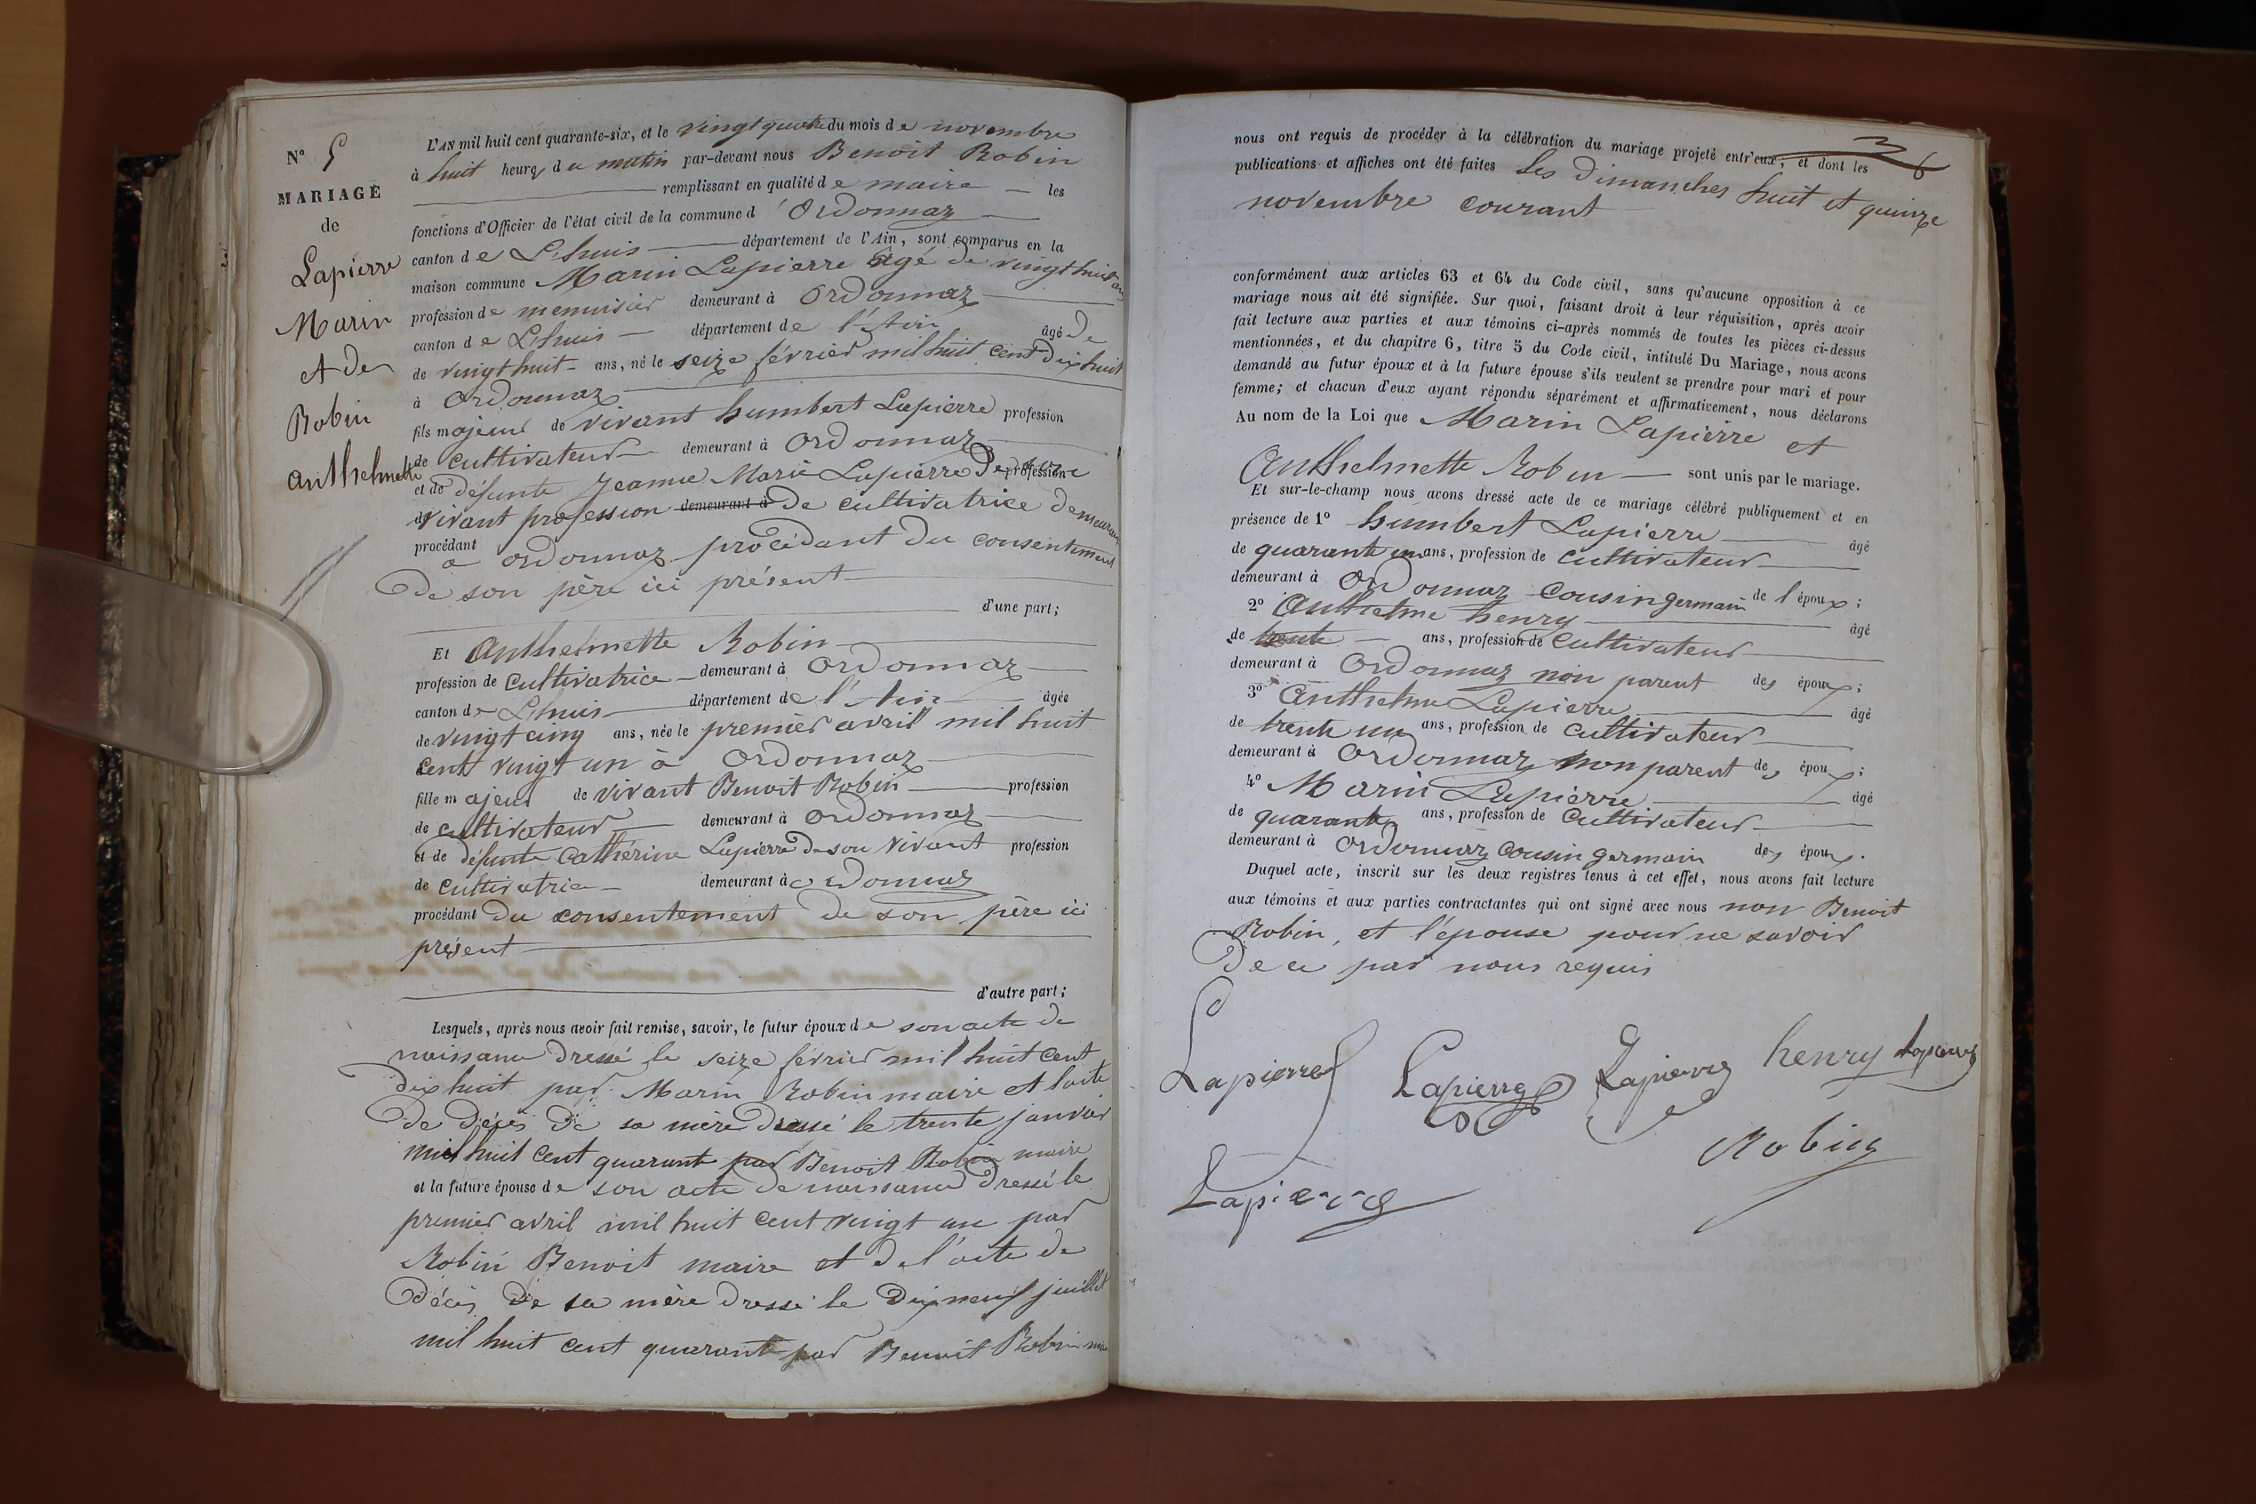 N° 5
MARIAGE
de
Lapierre
Marin
et de
Robin
anthelmette
L'AN mil huit cent quarante-six, et le vingt quatre du mois de novembre
à huit heures du matin par-devant nous Benoit Robin
remplissant en qualité de maire les
fonctions d'Officier de l'état civil de la commune d'Ordonnaz
canton de Lhuis département de l'Ain, sont comparus en la
maison commune Marin Lapierre âgé de vingt huit ans
profession de menuisier demeurant à Ordonnaz
canton de Lhuis département de l'Ain âgé de
de vingt huit ans, né le seize février mil huit cent dix huit
à Ordonnaz
fils majeur de vivant humbert Lapierre profession
de cultivateur demeurant à Ordonnaz
et de défunte Jeanne Marie Lapierre De son profession
de vivant profession demeurant à de cultivatrice demeurant
procédant à ordonnaz procédant du consentement
de son père ici présent
d'une part;
Et Anthelmette Robin
profession de cultivatrice demeurant à Ordonnaz
canton de Lhuis département de l'Ain âgée
de vingt cinq ans, née le premier avril mil huit
cent vingt un à Ordonnaz
fille majeur de vivant Benoit Robin profession
de cultivateur demeurant à Ordonnaz
et de défunte Cathérine Lapierre de son vivant profession
de cultivatrice demeurant à ordonnaz
procédant du consentement de son père ici
présent
d'autre part;
Lesquels, après nous avoir fait remise, savoir, le futur époux de son acte de
naissance dressé le seize février mil huit cent
dix huit par Marin Robin maire et l'acte
de décès de sa mère dressé le trente janvier
mil huit cent quarante par Benoit Robin maire
et la future épouse de son acte de naissance dressé le
premier avril mil huit cent vingt un par
Robin Benoit maire et de l'acte de
décès de sa mère dressé le dix neuf juillet
mil huit cent quarante par Benoit Robin
nous ont requis de procéder à la célébration du mariage projeté entr'eux, et dont les
publications et affiches ont été faites les dimanches huit et quinze
novembre courant
conformément aux articles 63 et 64 du Code civil, sans qu'aucune opposition à ce
mariage nous ait été signifiée. Sur quoi, faisant droit à leur réquisition, après avoir
fait lecture aux parties et aux témoins ci-après nommés de toutes les pièces ci-dessus
mentionnées, et du chapitre 6, titre 5 du Code civil, intitulé Du Mariage, nous avons
demandé au futur époux et à la future épouse s'ils veulent se prendre pour mari et pour
femme; et chacun d'eux ayant répondu séparément et affirmativement, nous déclarons
Au nom de la Loi que Marin Lapierre et
Anthelmette Robin sont unis par le mariage.
Et sur-le-champ nous avons dressé acte de ce mariage célébré publiquement et en
présence de 1° humbert Lapierre âgé
de quarante un ans, profession de cultivateur
demeurant à Ordonnaz cousin germain de l'époux;
2° Anthelme henry âgé
de trente ans, profession de cultivateur
demeurant à Ordonnaz non parent des époux;
3° Anthelme Lapierre âgé
de trente un ans, profession de cultivateur
demeurant à Ordonnaz non parent des époux;
4° Marin Lapierre âgé
de quarante ans, profession de cultivateur
demeurant à Ordonnaz cousin germain des époux.
Duquel acte, inscrit sur les deux registres tenus à cet effet, nous avons fait lecture
aux témoins et aux parties contractantes qui ont signé avec nous non Benoit
Robin, et l'épouse pour ne savoir
de ce par nous requis
Lapierre Lapierre Lapierre henry
Robin
Lapierre